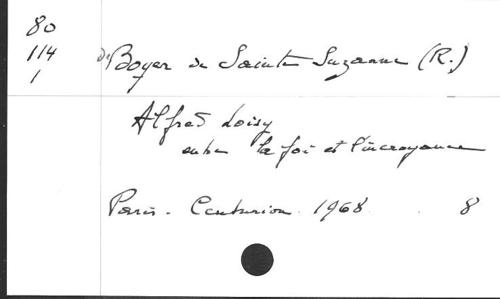 80
114
1
de Boyer de Sainte Suzanne (R.)
Alfred Loisy
entre la foi et l'incroyance
Paris - Centurion 1968 8